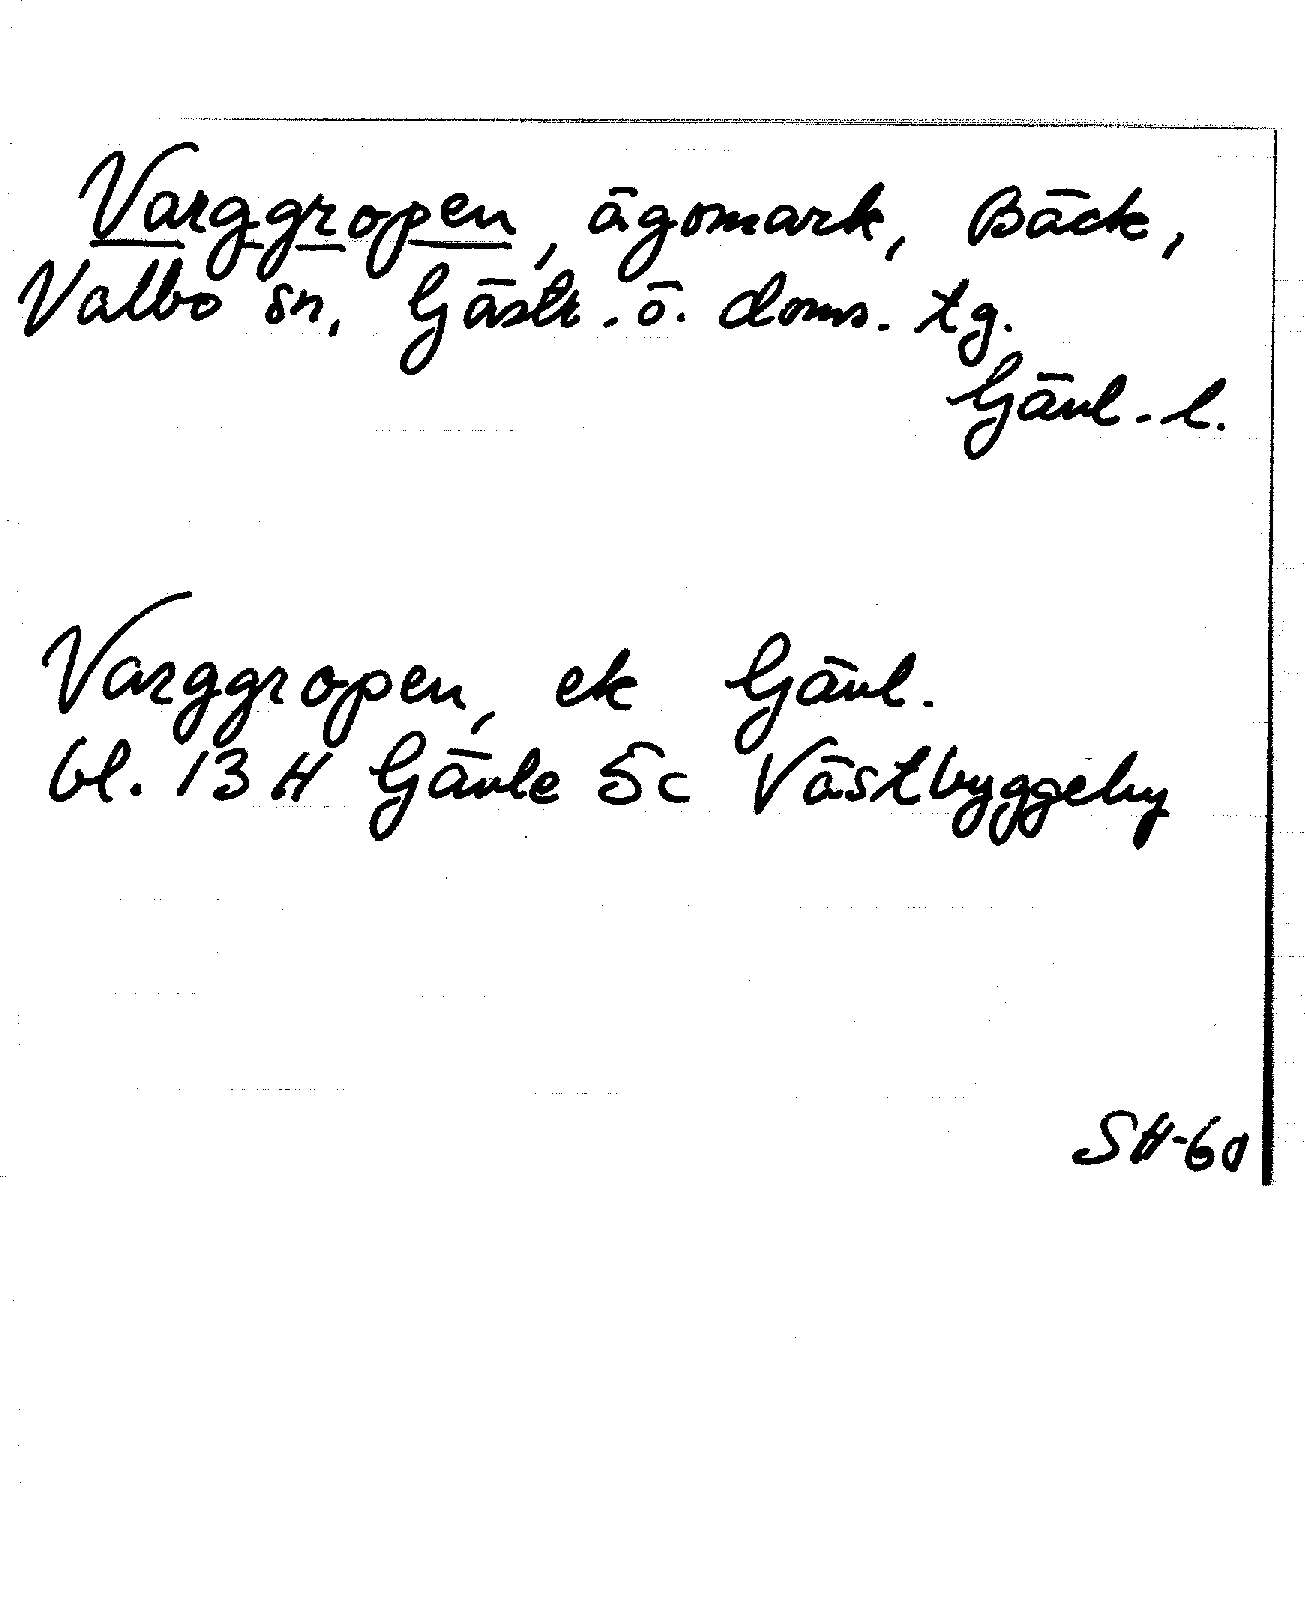 Varggropen, ägomark, Bäck,
Valbo sn, Gästr. ö. doms. tg.
Gävl. l.
Varggropen, ek Gävl.
bl. 13 H Gävle 5c Västbyggeby
SH-60